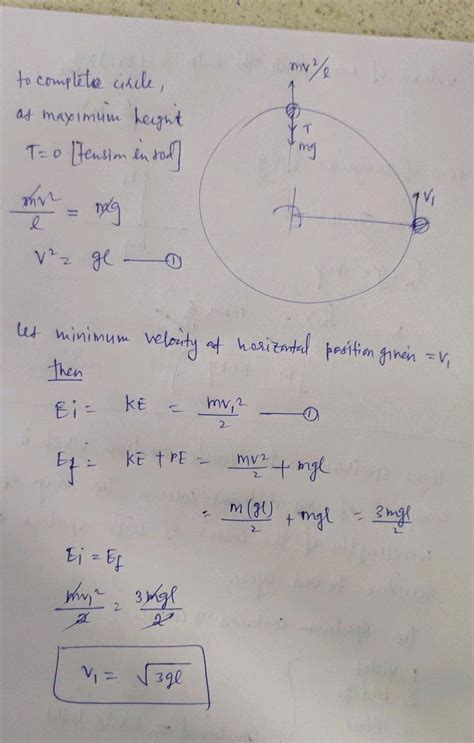 mv²/l
to complete circle,
at maximum height
T=0 [Tension in rod]
T
mg
mv²/l = mg
V₁
V² = gl —— ①
let minimum velocity at horizontal position given = V₁
then
Ei = KE = mv₁²/2 —— ①
Ef = KE + PE = mv²/2 + mgl
= m(gl)/2 + mgl = 3mgl/2
Ei = Ef
mv₁²/2 = 3mgl/2
V₁ = √3gl